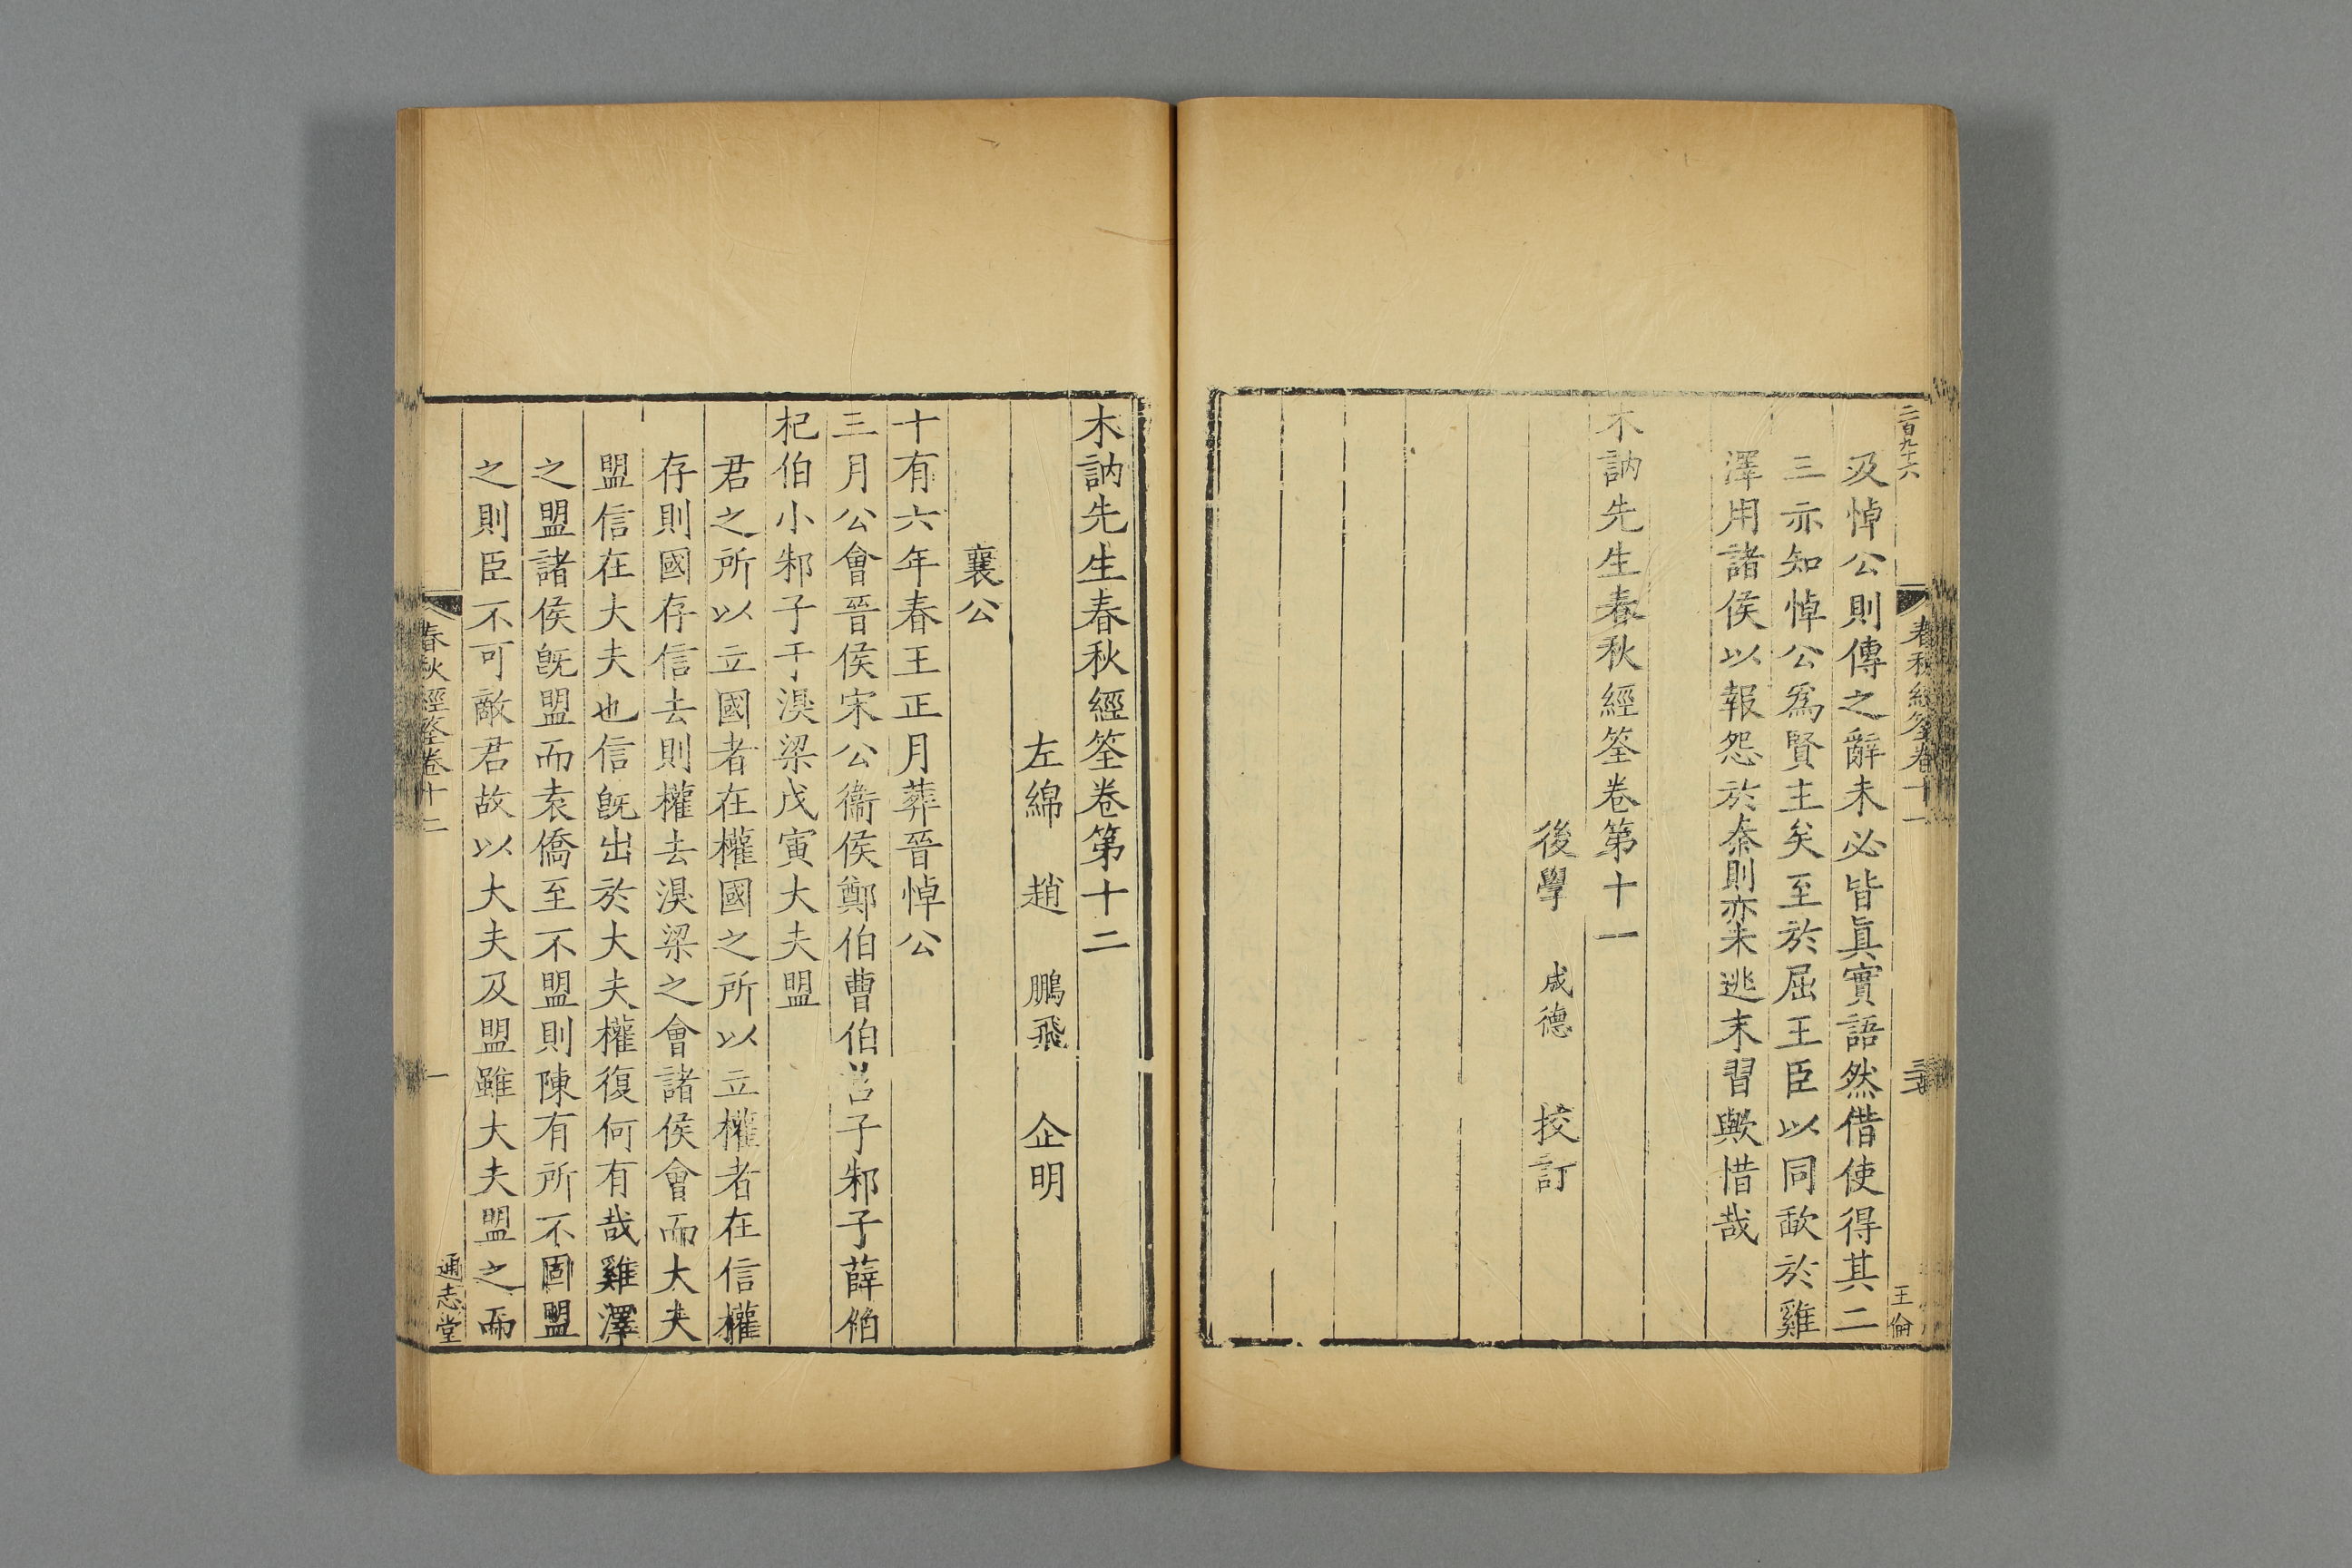 二百九十六
春秋經筌卷十一
王倫
及悼公則傳之辭未必皆眞實語然借使得其二
三亦知悼公爲賢主矣至於屈王臣以同歃於雞
澤用諸侯以報怨於秦則亦未逃末習歟惜哉
木訥先生春秋經筌卷第十一
後學 成德 挍訂
木訥先生春秋經筌卷第十二
左綿 趙 鵬飛 企明
襄公
十有六年春王正月葬晉悼公
三月公會晉侯宋公衞侯鄭伯曹伯莒子邾子薛伯
杞伯小邾子于湨梁戊寅大夫盟
君之所以立國者在權國之所以立權者在信權
存則國存信去則權去湨梁之會諸侯會而大夫
盟信在大夫也信旣出於大夫權復何有哉雞澤
之盟諸侯旣盟而袁僑至不盟則陳有所不固盟
之則臣不可敵君故以大夫及盟雖大夫盟之而
春秋經筌卷十二
一
通志堂